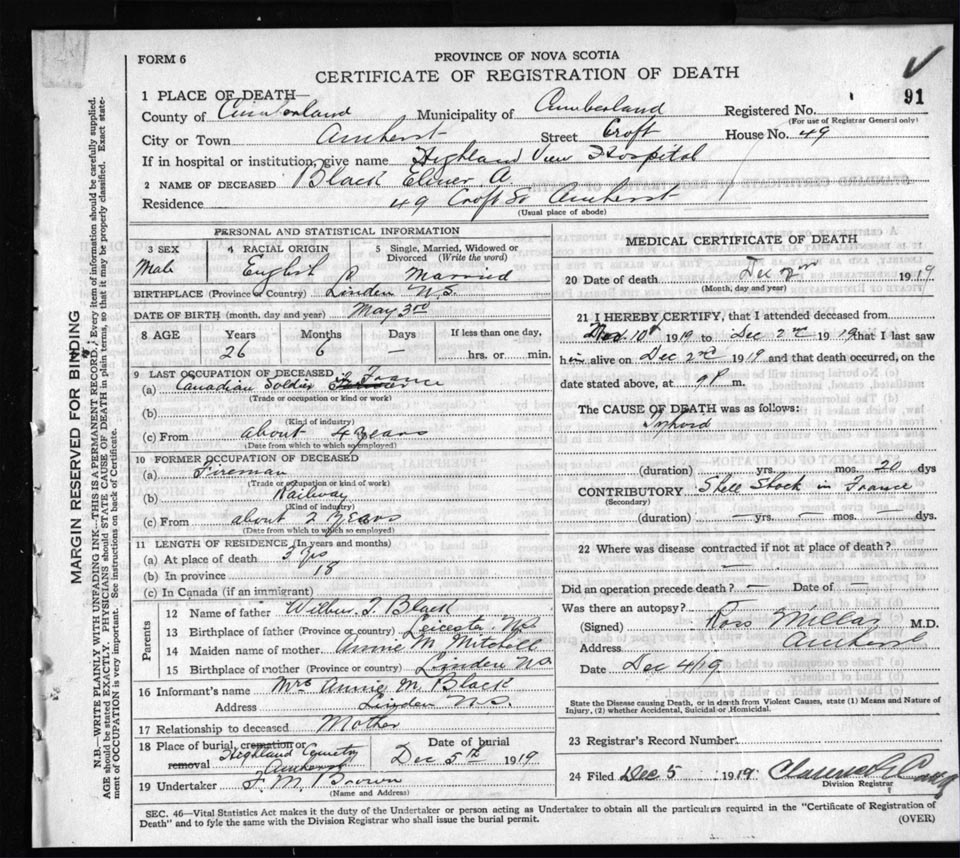 FORM 6
PROVINCE OF NOVA SCOTIA
CERTIFICATE OF REGISTRATION OF DEATH
91
1 PLACE OF DEATH—
County of Cumberland Municipality of Cumberland Registered No.
(For use of Registrar General only)
City or Town Amherst Street Croft House No. 49
If in hospital or institution, give name Highland View Hospital
2 NAME OF DECEASED Black Elmer A
Residence 49 Croft St Amherst
(Usual place of abode)
PERSONAL AND STATISTICAL INFORMATION
3 SEX 4 RACIAL ORIGIN 5 Single, Married, Widowed or Divorced (Write the word)
Male English Married
BIRTHPLACE (Province or Country) Linden N.S.
DATE OF BIRTH (month, day and year) May 3rd
8 AGE Years Months Days If less than one day,
26 6 — hrs. or min.
9 LAST OCCUPATION OF DECEASED
(a) Canadian Soldier France
(Trade or occupation or kind or work)
(b)
(Kind of industry)
(c) From about 4 years
(Date from which to which so employed)
10 FORMER OCCUPATION OF DECEASED
(a) Fireman
(Trade or occupation or kind of work)
(b) Railway
(Kind of industry)
(c) From about 2 years
(Date from which to which so employed)
11 LENGTH OF RESIDENCE (In years and months)
(a) At place of death 3 yrs
(b) In province 18
(c) In Canada (if an immigrant)
Parents
12 Name of father Wilbur T. Black
13 Birthplace of father (Province or country) Leicester N.S.
14 Maiden name of mother Annie M Mitchell
15 Birthplace of mother (Province or country) Linden NS
16 Informant's name Mrs Annie M. Black
Address Linden N.S.
17 Relationship to deceased Mother
18 Place of burial, cremation or removal Highland Cemetry Amherst
Date of burial Dec 5th 1919
19 Undertaker F. M. Brown
(Name and Address)
MEDICAL CERTIFICATE OF DEATH
20 Date of death Dec 2nd 1919
(Month, day and year)
21 I HEREBY CERTIFY, that I attended deceased from
10th 1919 to Dec 2nd 1919 that I last saw
him alive on Dec 2nd 1919 and that death occurred, on the
date stated above, at 9 P m.
The CAUSE OF DEATH was as follows:
Typhoid
(duration) yrs. mos. 20 dys
CONTRIBUTORY Shell Shock in France
(Secondary)
(duration) — yrs. — mos. — dys.
22 Where was disease contracted if not at place of death?
—
Did an operation precede death? — Date of —
Was there an autopsy?
(Signed) Ross Millar M.D.
Address Amherst
Date Dec 4/19
State the Disease causing Death, or in death from Violent Causes, state (1) Means and Nature of
Injury, (2) whether Accidental, Suicidal or Homicidal.
23 Registrar's Record Number
24 Filed Dec 5 1919
Division Registrar
SEC. 46—Vital Statistics Act makes it the duty of the Undertaker or person acting as Undertaker to obtain all the particulars required in the "Certificate of Registration of
Death" and to fyle the same with the Division Registrar who shall issue the burial permit.
(OVER)
MARGIN RESERVED FOR BINDING
N.B.—WRITE PLAINLY WITH UNFADING INK—THIS IS A PERMANENT RECORD. Every item of information should be carefully supplied.
AGE should be stated EXACTLY. PHYSICIANS should STATE CAUSE OF DEATH in plain terms, so that it may be properly classified. Exact state-
ment of OCCUPATION is very important. See instructions on back of Certificate.